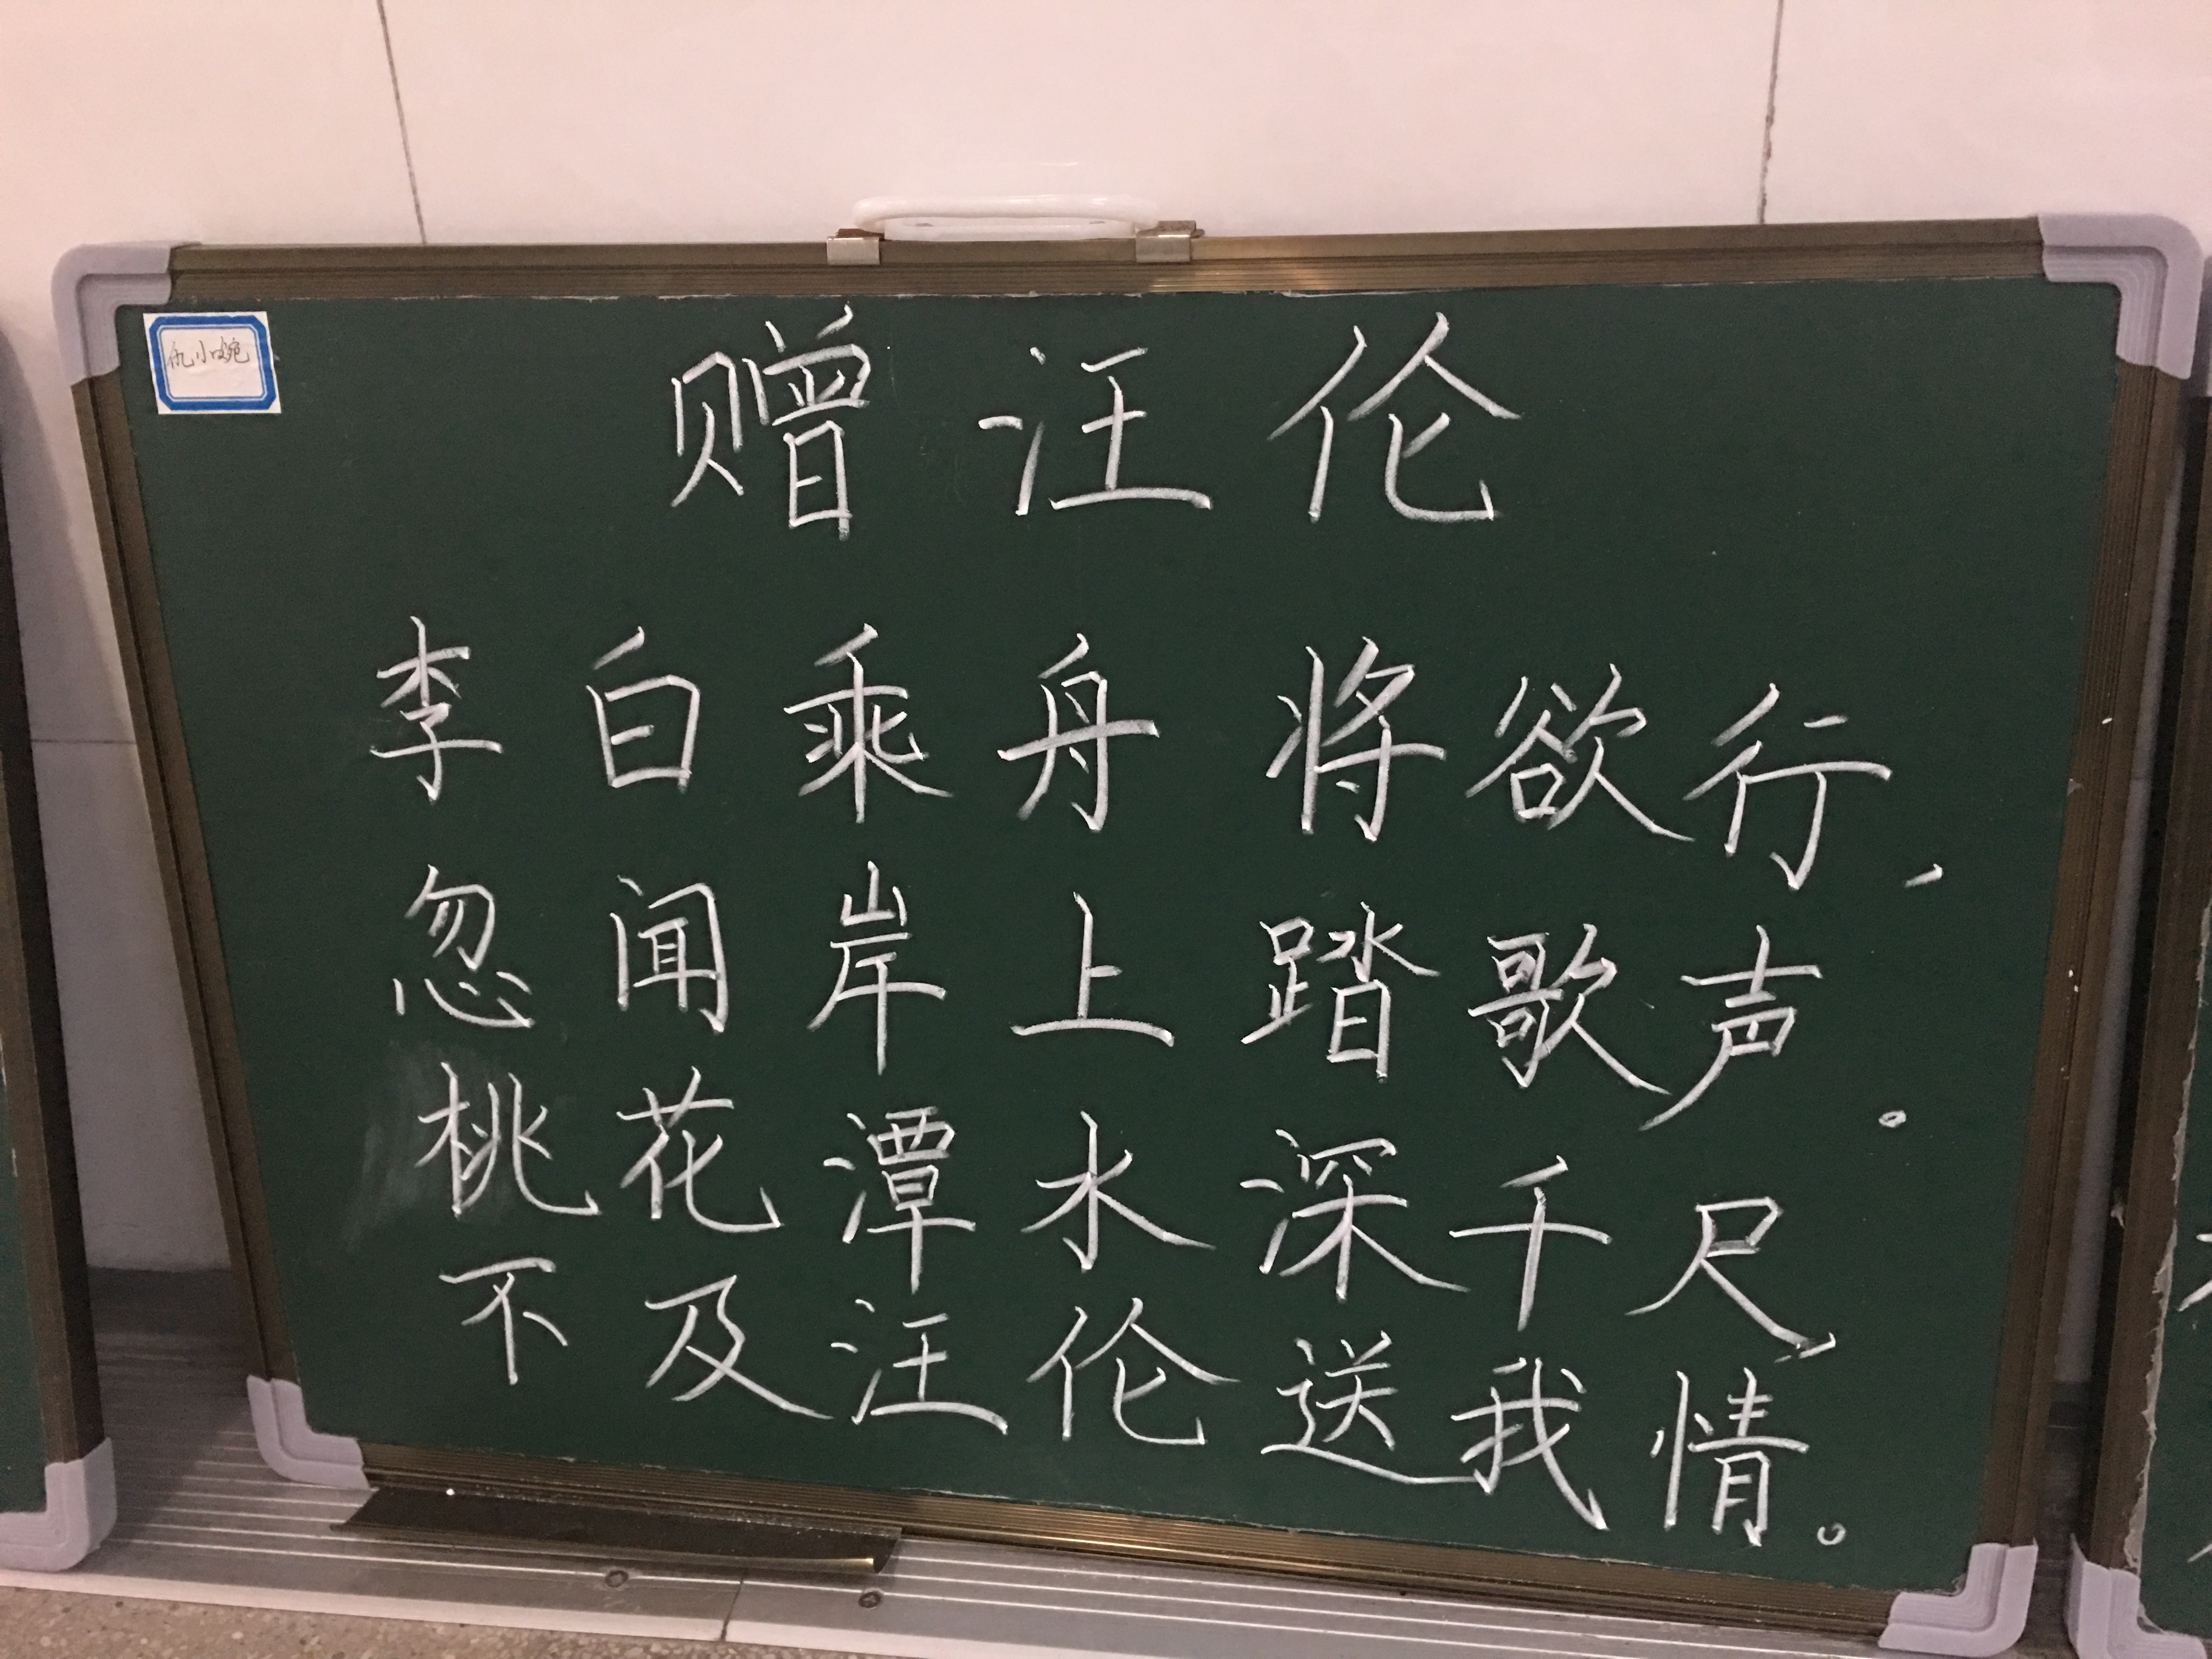 赠汪伦
李白乘舟将欲行，
忽闻岸上踏歌声。
桃花潭水深千尺，
不及汪伦送我情。